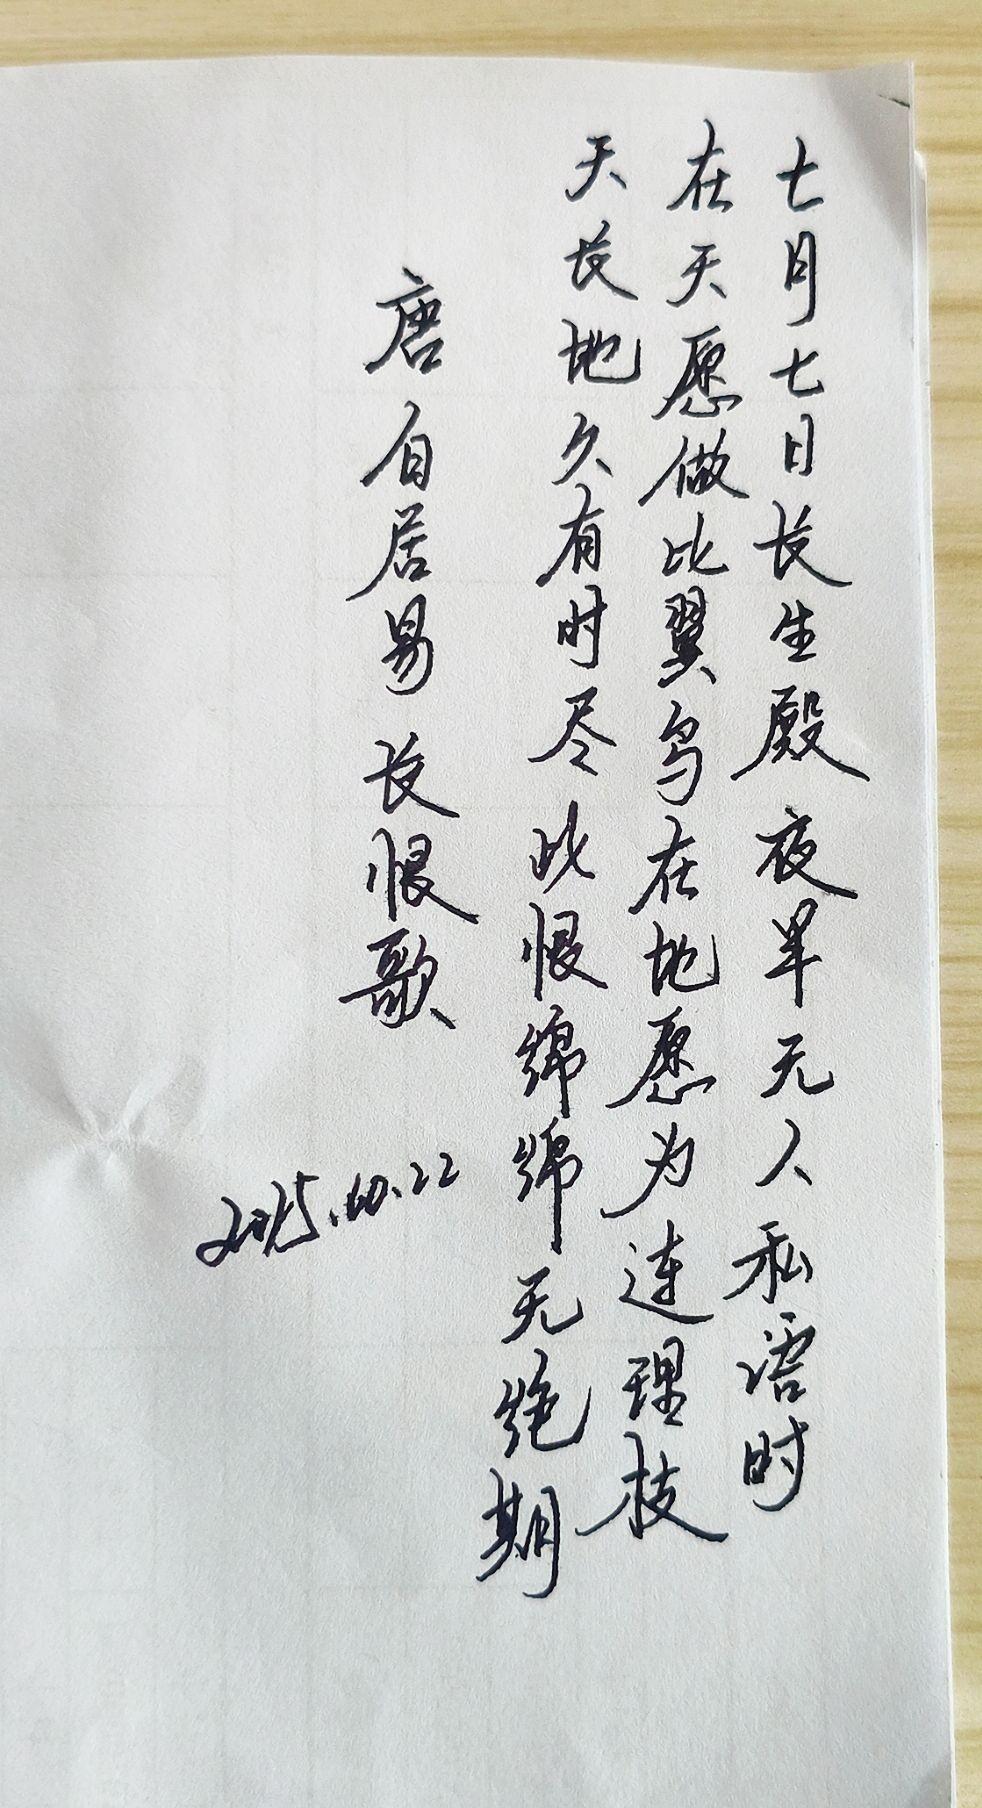 七月七日长生殿夜半无人私语时
在天愿做比翼鸟在地愿为连理枝
天长地久有时尽此恨绵绵无绝期
唐白居易长恨歌
2025.10.22